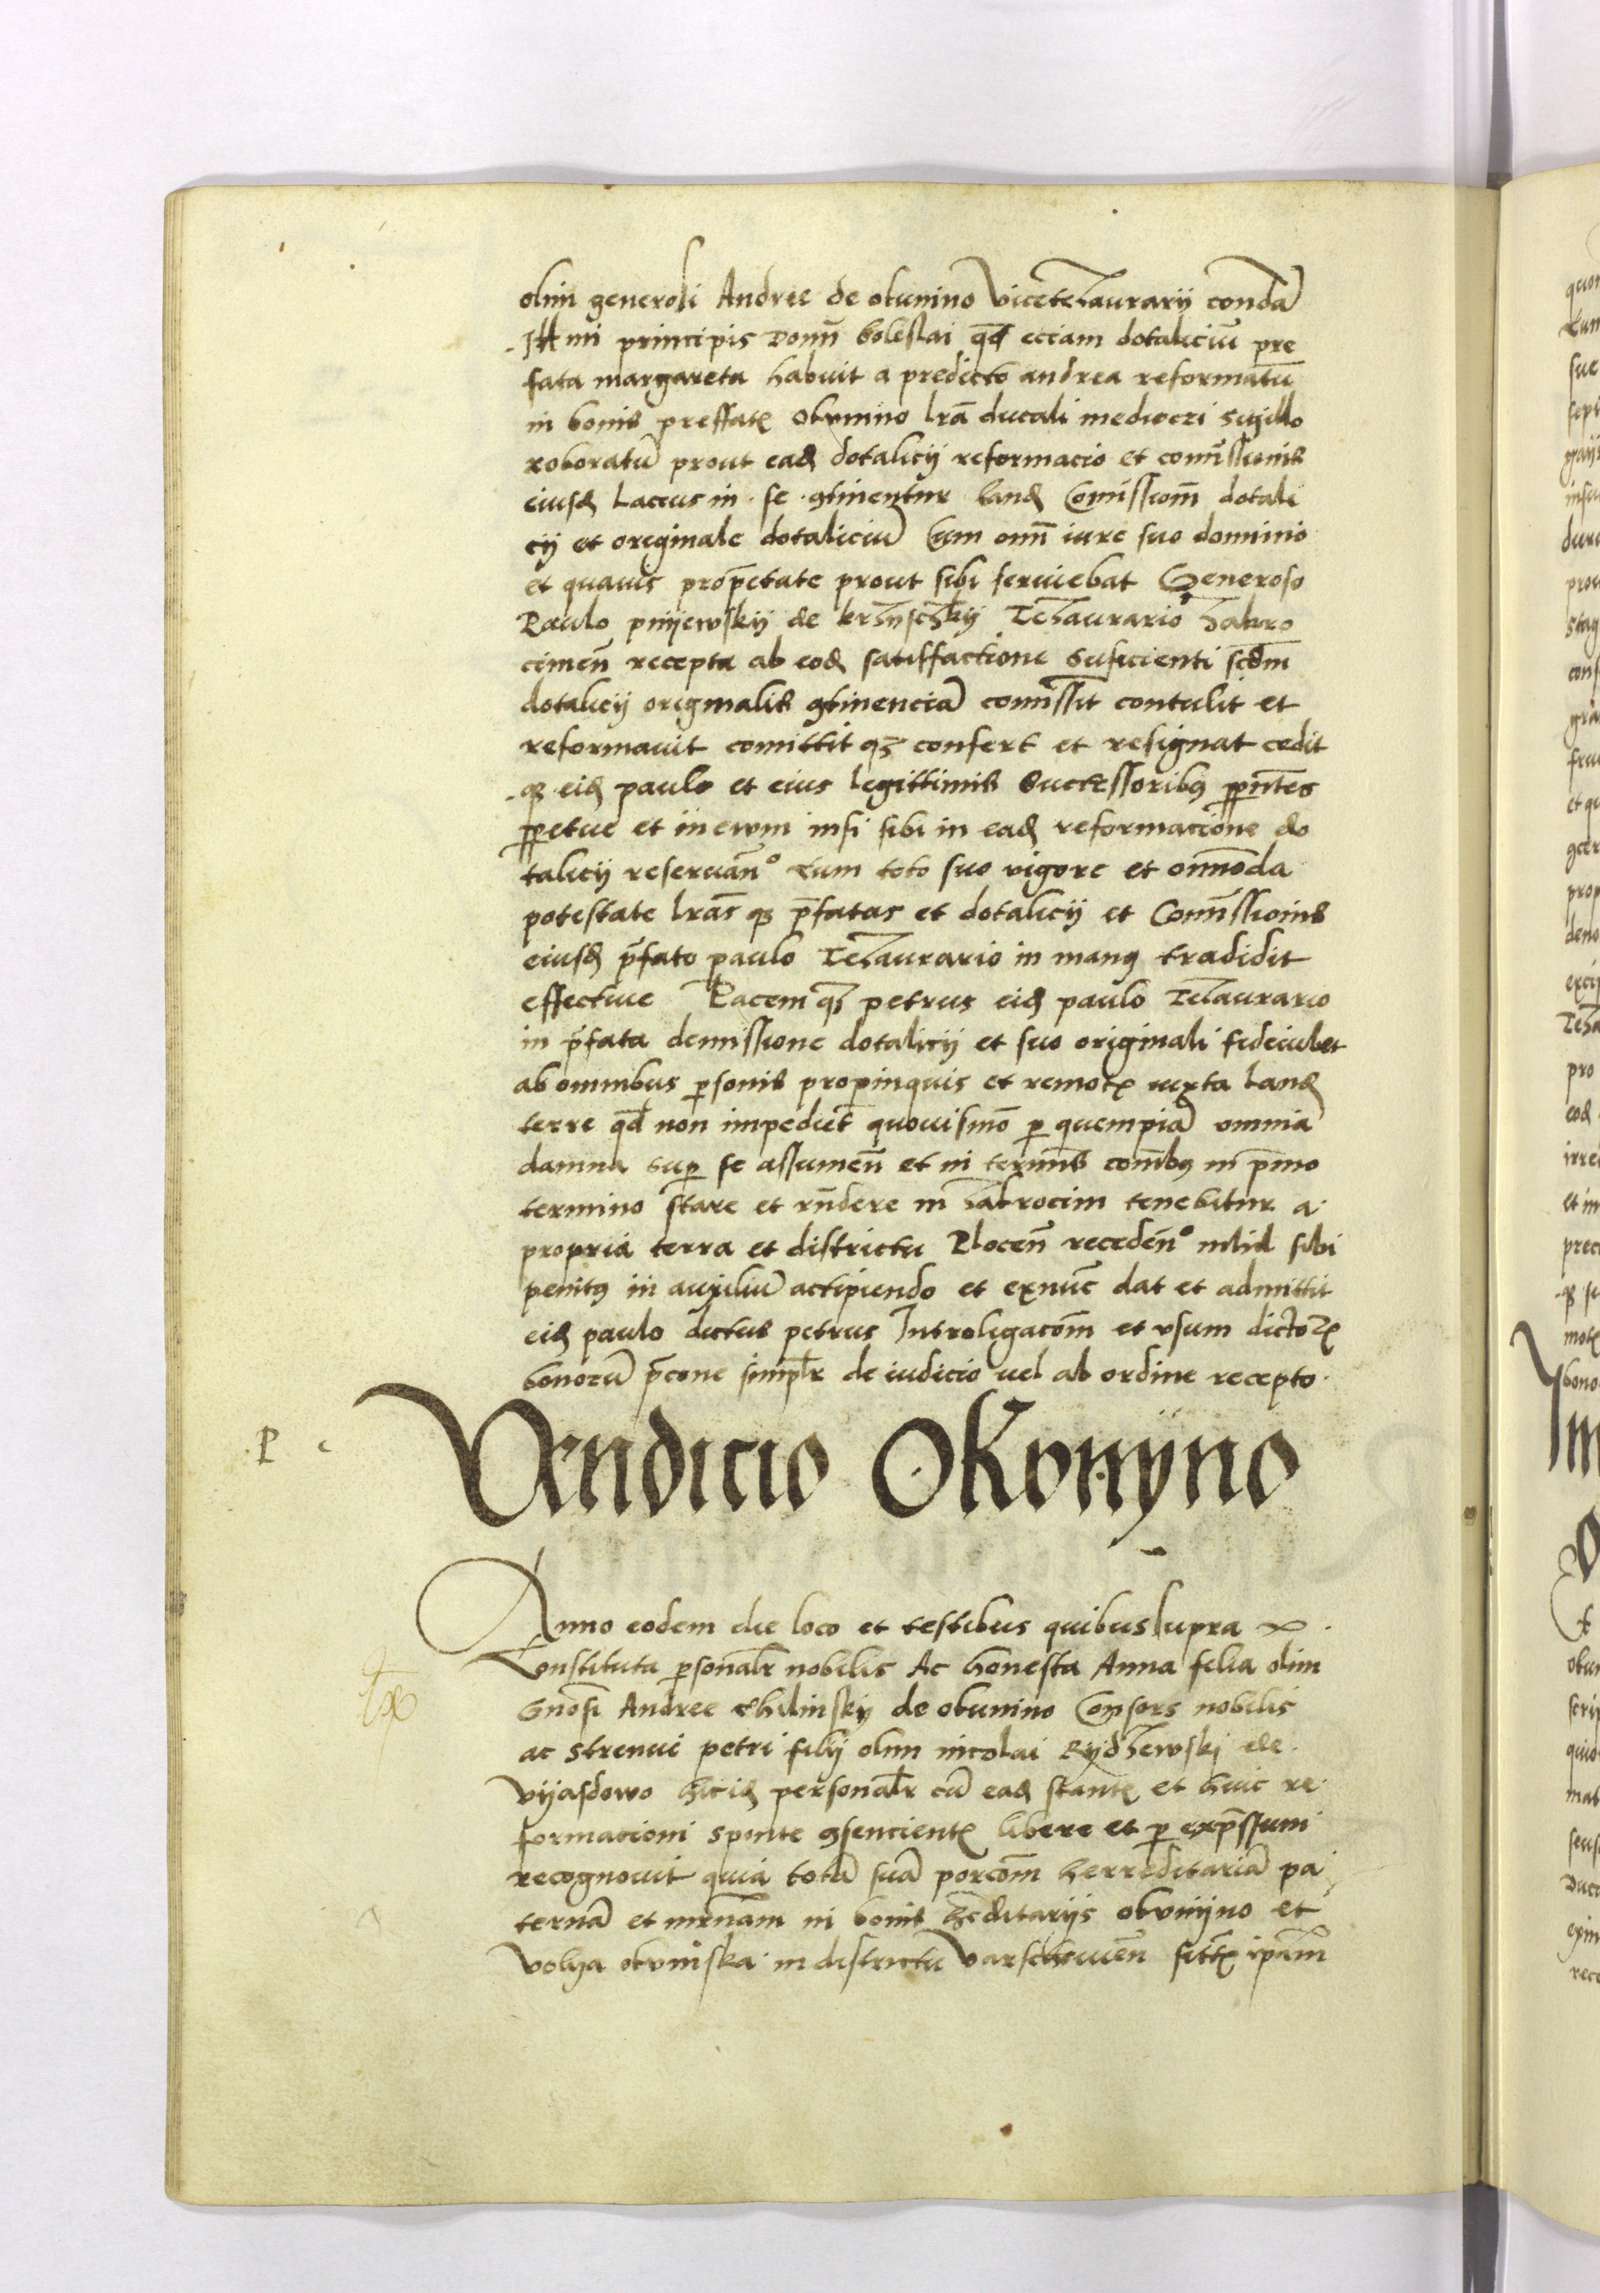 olim generosi Andree de okunino Vicetezaurarij condā
Illmi principis Domī boleslai qd̄ eciam dotaliciū pre
fata margareta habuit a predicto andrea reformatū
in bonis preffatꝫ okvnino lrā ducali mediocri sigillo
roboratū prout eadꝫ dotalicij reformacio et comissionis
eiusdꝫ lacius in se ꝯtinentur Eandꝫ Comissiom̄ dotali
cij et originale dotaliciū Cum omī iure suo dominio
et quauis prop̄etate prout sibi seruiebat Generoso
Paulo pnijewskij de Tezaurario zakro
cimen̄ recepta ab eodꝫ satisffactione suficienti scdm̄
dotalicij originalis ꝯtinenciā comissit contulit et
reformauit comittit qꝫ confert et resignat cedit
qꝫ eidꝫ paulo et eius legittimis Successoribꝰ
ꝑpetue et in ewm insi sibi in eadꝫ reformacione do
talicij reseruan̄º Cum toto suo vigore et omnoda
potestate lrās qꝫ p̄fatas et dotalicij et Comissionis
eiusdꝫ p̄fato paulo Tezaurario in manꝰ tradidit
effectiue Pacem qꝫ petrus eidꝫ paulo Tezaurario
in p̄fata demissione dotalicij et suo originali fideiubet
ab omnibus ꝑsonis propinquis et remotꝫ iuxta landꝫ
terre qd̄ non impediet̄ quouismō ꝑ quempiā omnia
damna suꝑ se assumen̄ et in terminis comībꝰ in p̄mo
termino stare et rn̄dere in zakrocim tenebitur a
propria terra et districtu Plocen̄ receden̄º nihil sibi
penitꝰ in auxiliū accipiendo et exnūc dat et admittit
eidꝫ paulo dictus petrus Introligacōm et vsum dictoꝝ
bonorū p̄cone simplr̄ de iudicio uel ab ordine recepto
P c Vendicio Okvnyno
Anno eodem die loco et testibus quibus supra
Constituta ꝑsonalr̄ nobilis Ac honesta Anna filia olim
Gnōsi Andree Chilinskij de okunino Consors nobilis
ac strenui petri filij olim nicolai Rydzewski de
vijasdowo ꝑsonalr̄ cū eadꝫ stantꝫ et huic re
formacioni sponte ꝯsencientꝫ libere et ꝑ exp̄ssum
recognouit quia totā suā porcōm herreditariā pa
ternā et mrn̄am in bonis hēditarijs okvnijno et
volya okvniska in districtu Varschouien̄ sittꝫ ipam̄